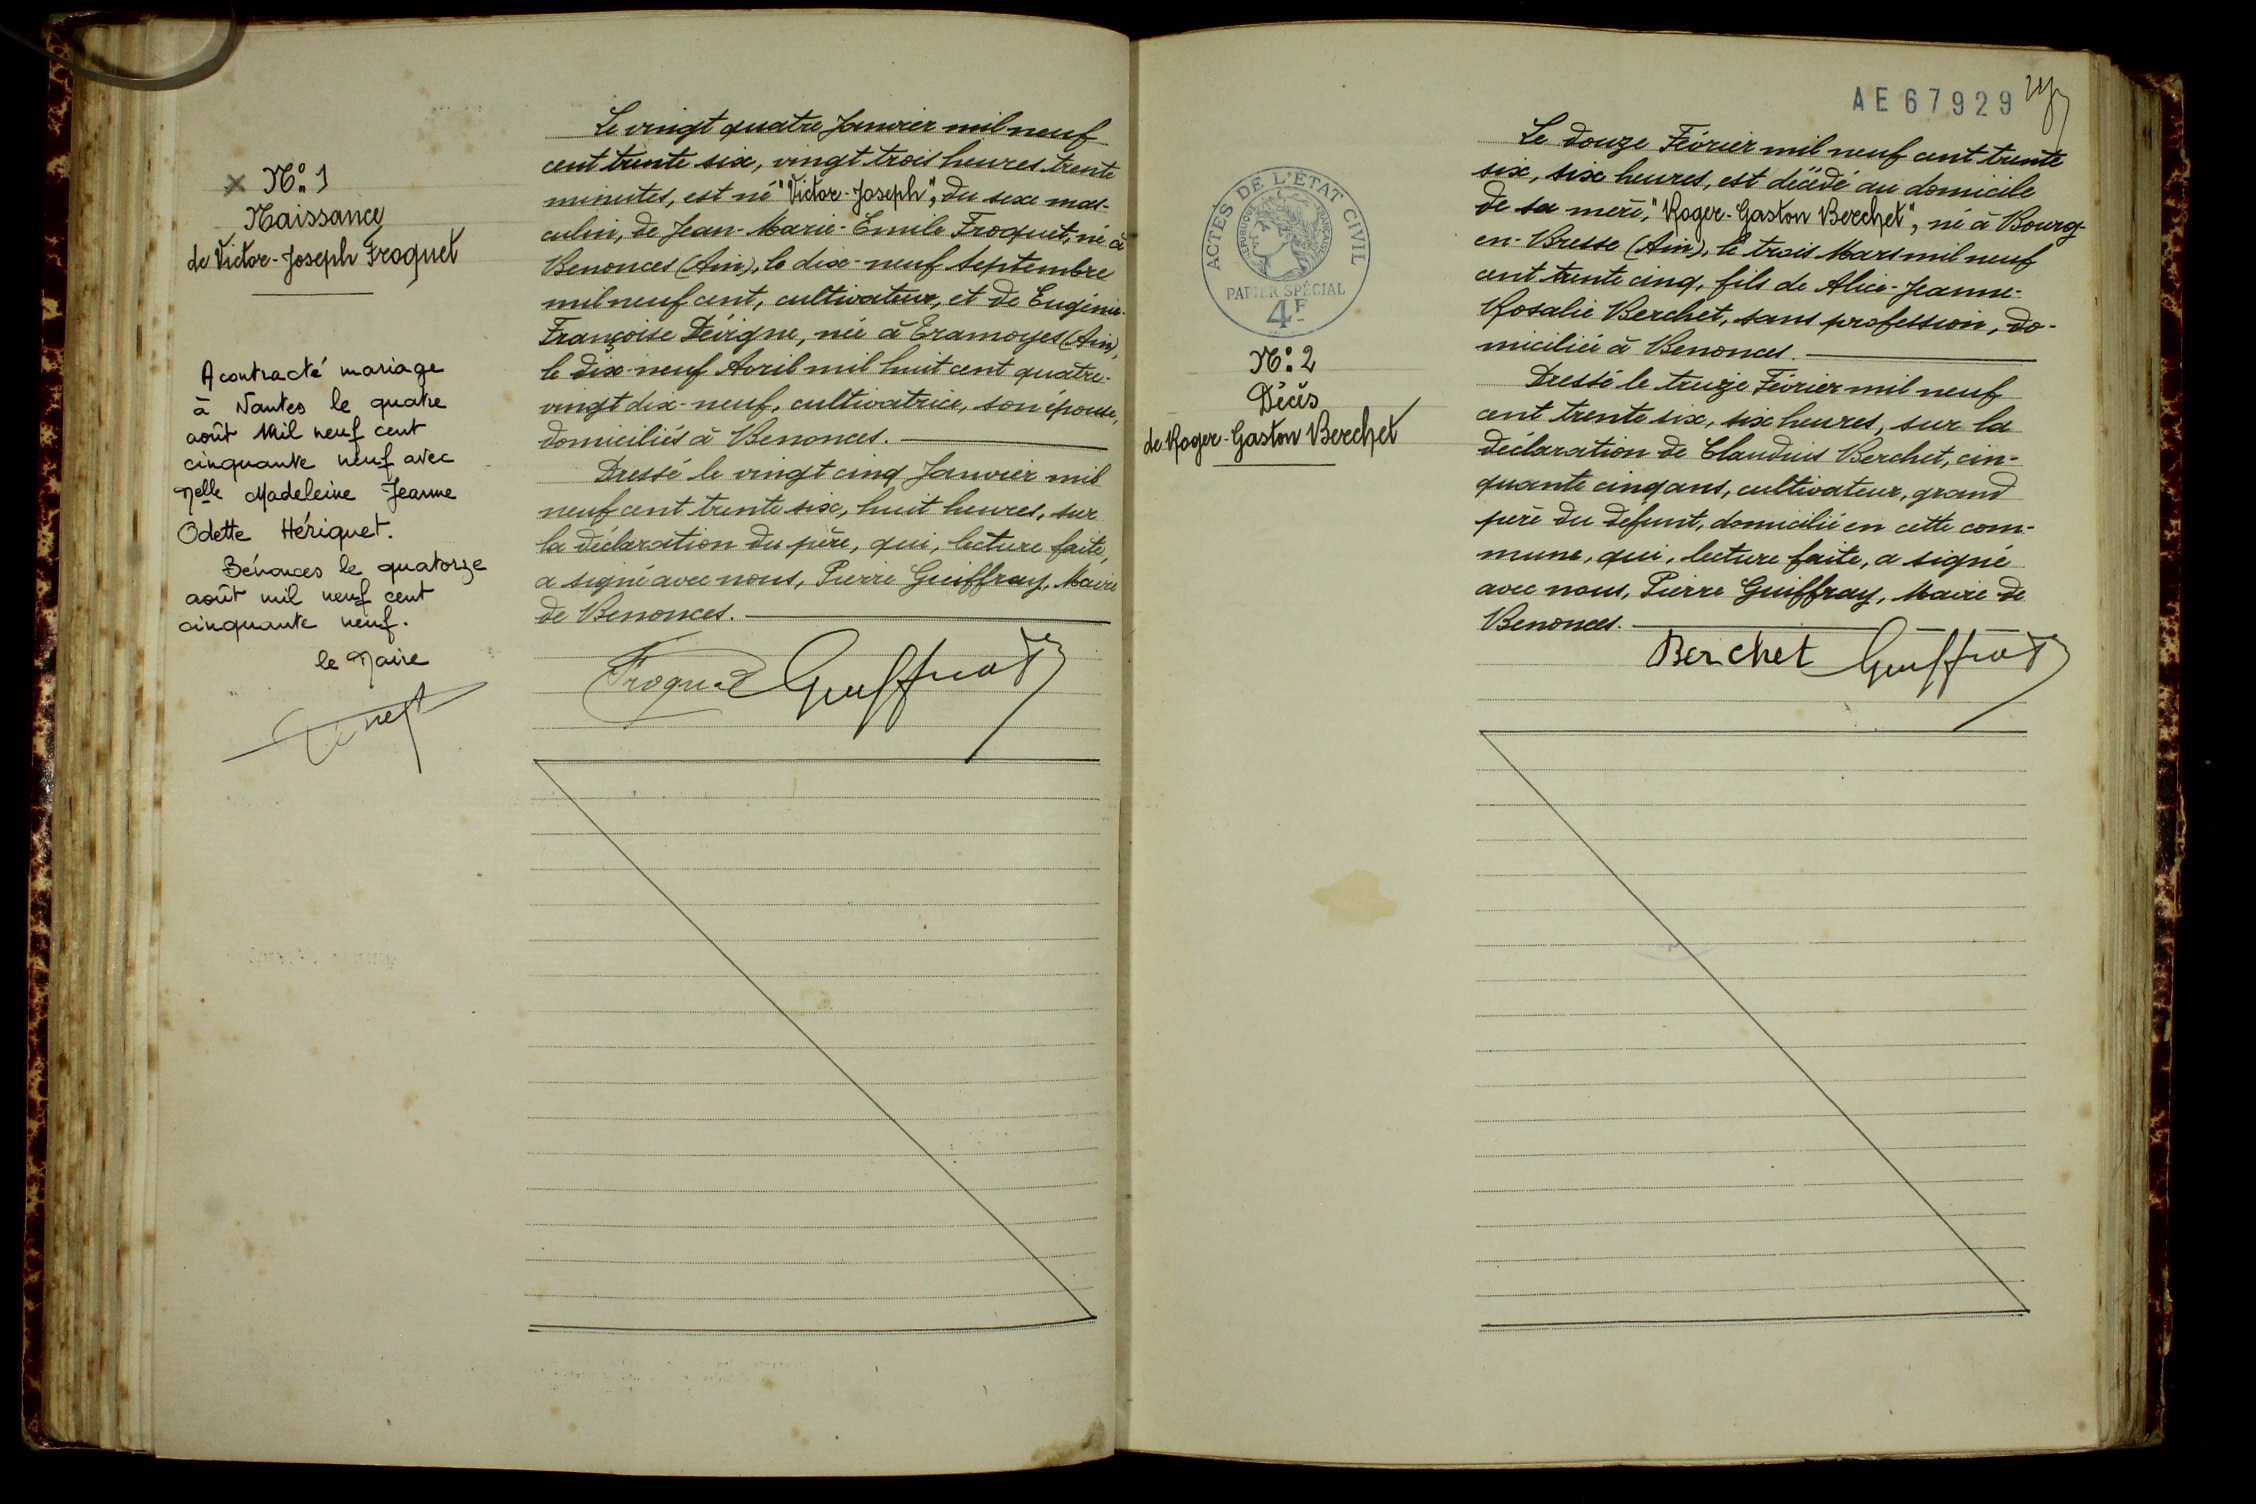 N° 1
Naissance
de Victor-Joseph Froquet
A contracté mariage
à Nantes le quatre
août Mil neuf cent
cinquante neuf avec
Melle Madeleine Jeanne
Odette Hériquet.
Bénonces le quatorze
août mil neuf cent
cinquante neuf.
le Maire
Le vingt quatre Janvier mil neuf
cent trente six, vingt trois heures trente
minutes, est né "Victor-Joseph", du sexe mas-
culin, de Jean-Marie-Emile Froquet, né à
Benonces (Ain), le dix-neuf Septembre
mil neuf cent, cultivateur, et de Eugénie-
Françoise Dévigne, née à Tramoyes (Ain),
le dix-neuf Avril mil huit cent quatre-
vingt dix-neuf, cultivatrice, son épouse,
domiciliés à Benonces.
Dressé le vingt cinq Janvier mil
neuf cent trente six, huit heures, sur
la déclaration du père, qui, lecture faite,
a signé avec nous, Pierre Guiffray, Maire
de Benonces.
Froquet Guiffray
AE 67929
ACTES DE L'ÉTAT CIVIL
RÉPUBLIQUE FRANÇAISE
PAPIER SPÉCIAL
4F
N° 2
Décès
de Roger-Gaston Berchet
Le douze Février mil neuf cent trente
six, six heures, est décédé au domicile
de sa mère, "Roger-Gaston Berchet", né à Bourg-
en-Bresse (Ain), le trois Mars mil neuf
cent trente cinq, fils de Alice-Jeanne-
Rosalie Berchet, sans profession, do-
miciliée à Benonces.
Dressé le treize Février mil neuf
cent trente six, six heures, sur la
déclaration de Claudius Berchet, cin-
quante cinq ans, cultivateur, grand
père du défunt, domicilié en cette com-
mune, qui, lecture faite, a signé
avec nous, Pierre Guiffray, Maire de
Benonces.
Berchet Guiffray